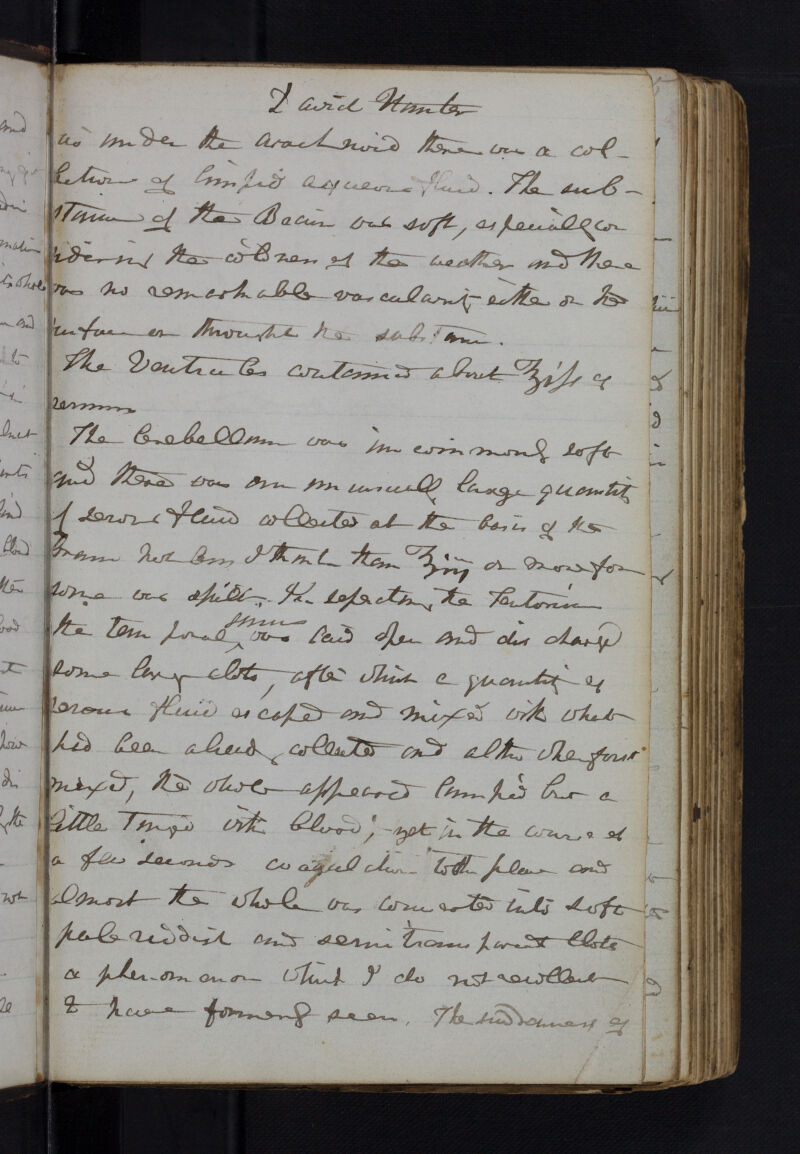 David Hunter
as under the arachnoid there was a col-
lection of limpid aqueous fluid. The sub-
stance of the Brain was soft, especially con
sidering the coldness of the weather and there
was no remarkable vascularity either on the
surface or throught the substance.
The Ventricles contained about ℥ifs of
serum
The Cerebellum was uncommonly soft
and there was an unusually large quantity
of serous fluid collected at the basis of the
Brain not less I think than or more for
some was spilt. In the Tentorium
the temporal sinus was laid open and discharged
some large clots, after which a quantity of
serous fluid escaped and mixed with what
had been already collected and altho when first
mixed, the whole appeared limpid but a
little tinged with blood; yet in the course of
a few seconds coagulation took place and
almost the whole was converted into soft
pale reddish and semitransparent clots
a phenomenon which I do not recollect
to have formerly seen. The suddenness of